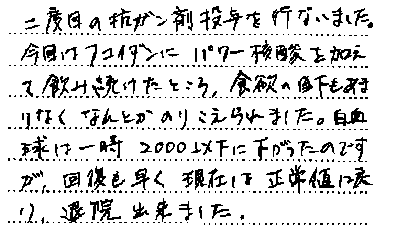 二度目の抗ガン剤投与を行ないました。
今回はフコイダンに パワー核酸を加え
て飲み続けたところ、食欲の低下もあま
りなく なんとか のりこえられました。白血
球は一時 2000以下に下がったのです
が、回復も早く 現在は 正常値に戻
り、退院 出来ました。